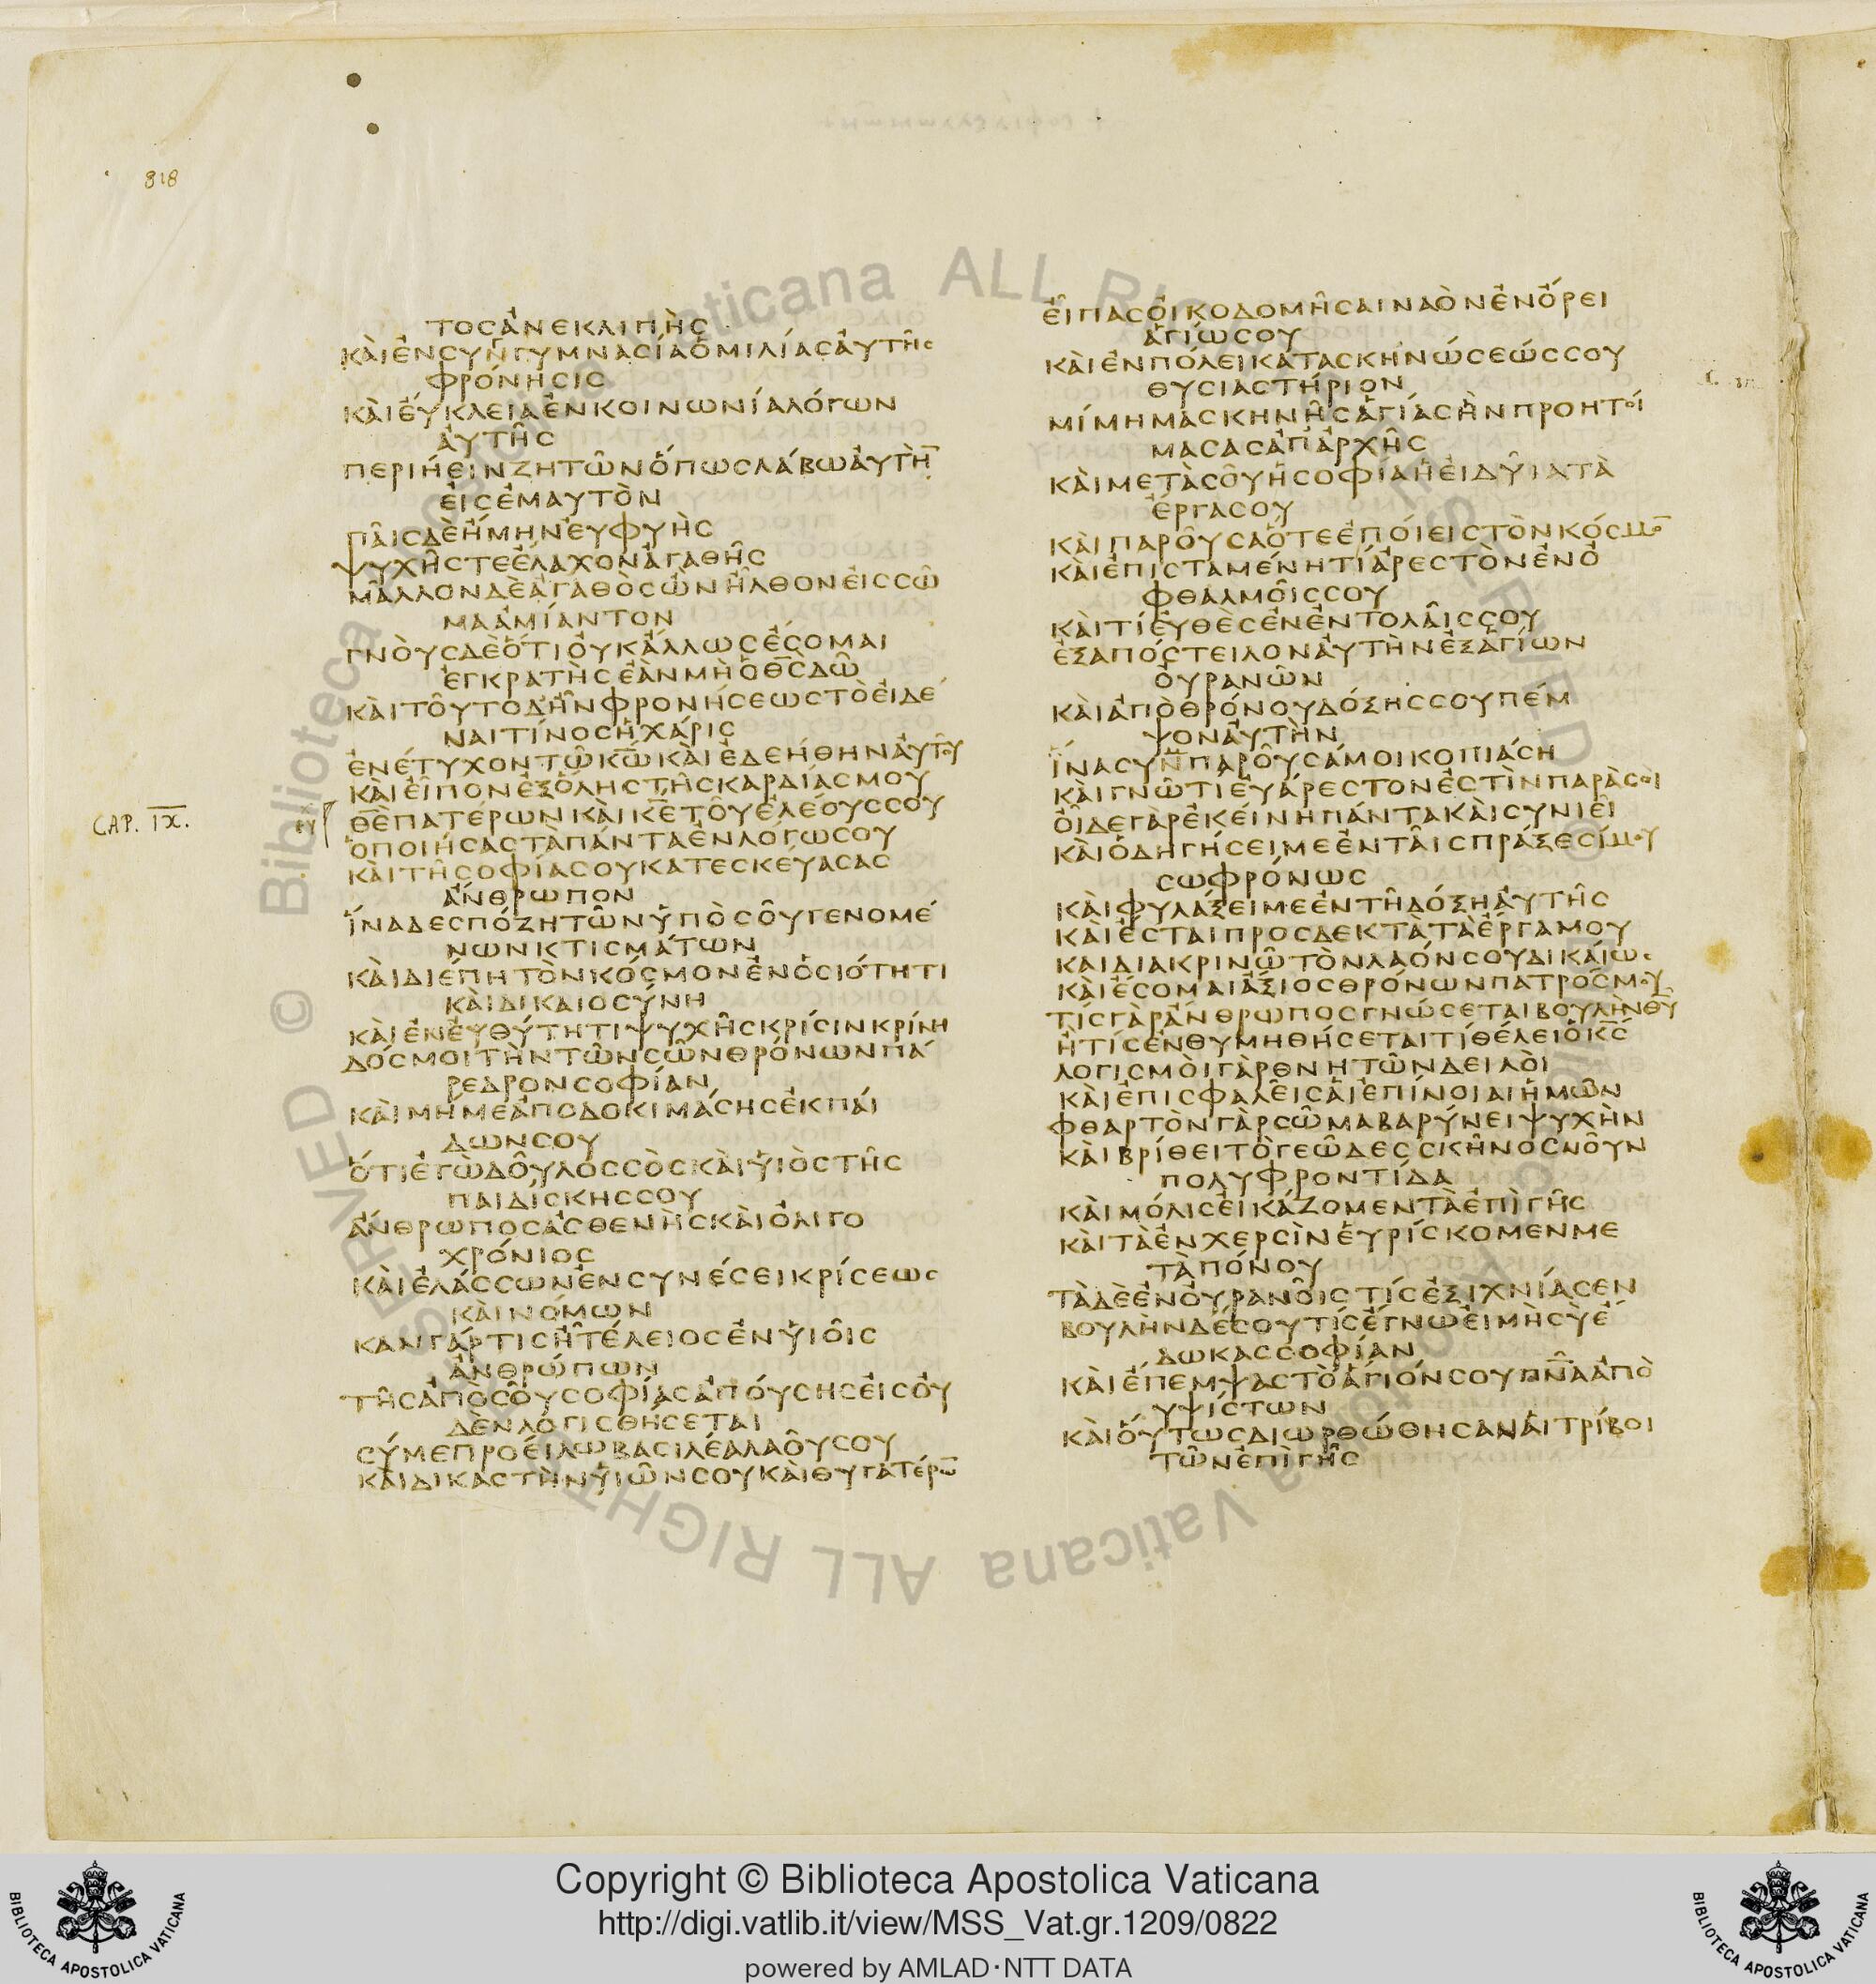 818
τοσἀνεκλιπὴσ
κὰιἐνσυνγυμνασίαὁμιλίασἀυτῆσ
φρόνησισ
κὰιἐύκλειαἐνκοινωνίαλόγων
ἀυτῆσ
περιήεινζητῶνὅπωσλάβωἀυτὴ̅
ἐισἐμαυτὸν
πᾶισδὲἤμηνἐυφυὴσ
ψυχῆστεἔλαχονἀγαθῆσ
μᾶλλονδὲἀγαθὸσὢνἦλθονἐισσῶ
μαἀμίαντον
γνὸυσδὲὅτιὀυκἄλλωσἔσομαι
ἐγκρατὴσἐὰνμὴὁθ̅σ̅δῶ
κὰιτοῦτοδἦνφρονήσεωστὸἐιδέ
ναιτίνοσἡχάρισ
ἐνέτυχοντῶκ̅ω̅κὰιἐδεήθηνἀυτοῦ
κὰιἐῖπονἐξὅληστῆσκαρδίασμου
CAP. IX.
θ̅ε̅πατέρωνκὰικ̅ε̅τοῦἐλέουσσου
ὁποιήσαστὰπάνταἐνλόγωσου
κὰιτῆσοφίασουκατεσκέυασασ
ἄνθρωπον
ἵναδεσπόζητῶνὑπὸσοῦγενομέ
νωνκτισμάτων
κὰιδιέπητὸνκόσμονἐνὁσιότητι
κὰιδικαιοσύνη
κὰιἐνἐυθύτητιψυχῆσκρίσινκρίνη
δόσμοιτὴντῶνσῶνθρόνωνπά
ρεδρονσοφίαν
κὰιμήμεἀποδοκιμάσησἐκπάι
δωνσου
ὅτιἐγὼδοῦλόσσὸσκὰιὑιὸστῆσ
παιδίσκησσου
ἄνθρωποσἀσθενὴσκὰιὀλιγο
χρόνιοσ
κὰιἐλάσσωνἐνσυνέσεικρίσεωσ
κὰινόμων
κανγάρτισῆτέλειοσἐνὑιοῖσ
ἀνθρώπων
τῆσἀπὸσοῦσοφίασἀπόυσησἐισὀυ
δὲνλογισθήσεται
σύμεπροέιλωβασιλέαλαοῦσου
κὰιδικαστὴνὑιῶνσουκὰιθυγατέρω̅
ἐῖπασὀικοδομῆσαιναὸνἐνὄρει
ἁγίωσου
κὰιἐνπόλεικατασκηνώσεώσσου
θυσιαστήριον
μίμημασκηνῆσἁγίασἣνπροητόι
μασασἀπἀρχῆσ
κὰιμετὰσοῦἡσοφίαἡἐιδῦιατὰ
ἔργασου
κὰιπαροῦσαὅτεἐπόιειστὸνκόσμο̅
κὰιἐπισταμένητίἀρεστὸνἐνὀ
φθαλμοῖσσου
κὰιτίἐυθὲσἐνἐντολᾶισσου
ἐξαπόστειλονἀυτὴνἐξἁγίων
ὀυρανῶν
κὰιἀπὸθρόνουδόξησσουπέμ
ψονἀυτὴν
ἵνασυνπαροῦσάμοικοπιάση
κὰιγνῶτίἐυάρεστονἐστὶνπαρὰσοι
ὀῖδεγὰρἐκέινηπάντακὰισυνιεῖ
κὰιὁδηγήσειμεἐνταῖσπράξεσίμου
σωφρόνωσ
κὰιφυλάξειμεἐντῆδόξηἀυτῆσ
κὰιἔσταιπροσδεκτὰτὰἔργαμου
καιδιακρινῶτὸνλαόνσουδικάιωσ
κὰιἔσομαιἄξιοσθρόνωνπατρόσμου
τίσγὰρἄνθρωποσγνώσεταιβουλὴνθ̅υ̅
ἢτίσἐνθυμηθήσεταιτίθέλειὁκ̅σ̅
λογισμὸιγὰρθνητῶνδειλὸι
κὰιἐπισφαλεῖσἁιἐπίνοιαιἡμῶν
φθαρτὸνγὰρσῶμαβαρύνειψυχὴν
κὰιβρίθειτὸγεῶδεσσκῆνοσνοῦν
πολυφροντίδα
κὰιμόλισἐικάζομεντὰἐπὶγῆσ
κὰιτὰἐνχερσὶνἑυρίσκομενμε
τὰπόνου
τὰδὲἐνὀυρανοῖστίσἐξιχνίασεν
βουλὴνδέσουτίσἔγνωἐιμὴσὺἔ
δωκασσοφίαν
κὰιἔπεμψαστὸἅγιόνσουπ̅ν̅α̅ἀπὸ
ὑψίστων
κὰιὅυτωσδιωρθώθησανἁιτρίβοι
τῶνἐπὶγῆσ
Copyright © Biblioteca Apostolica Vaticana
http://digi.vatlib.it/view/MSS_Vat.gr.1209/0822
powered by AMLAD·NTT DATA
BIBLIOTECA APOSTOLICA VATICANA
BIBLIOTECA APOSTOLICA VATICANA